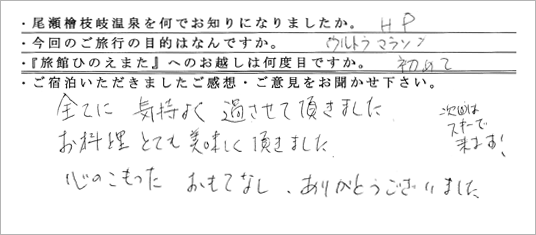 ・尾瀬檜枝岐温泉を何でお知りになりましたか。 HP
・今回のご旅行の目的はなんですか。 ウルトラマラソン
・『旅館ひのえまた』へのお越しは何度目ですか。 初めて
・ご宿泊いただきましたご感想・ご意見をお聞かせ下さい。
全てに 気持よく 過させて頂きました
お料理 とても 美味しく頂きました
心のこもった おもてなし、ありがとうございました
次回は
スキーで
来ます!